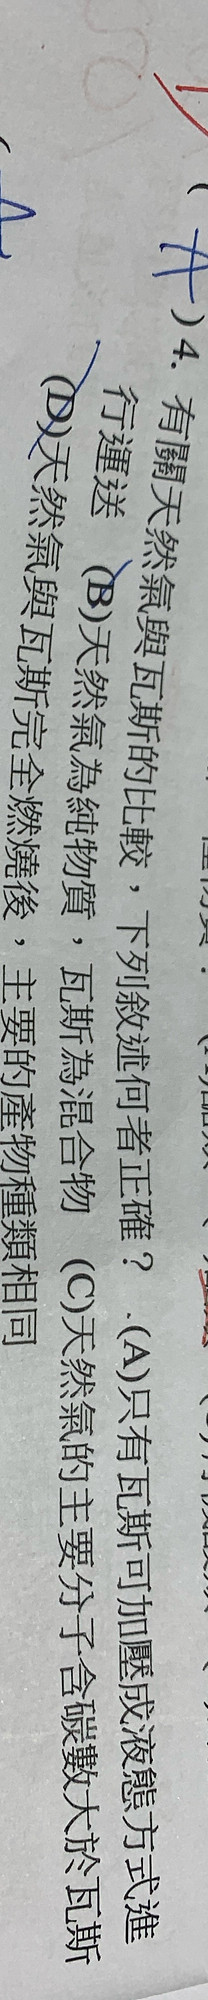 (A)4. 有關天然氣與瓦斯的比較，下列敘述何者正確？.(A)只有瓦斯可加壓成液態方式進
行運送 (B)天然氣為純物質，瓦斯為混合物 (C)天然氣的主要分子含碳數大於瓦斯
(D)天然氣與瓦斯完全燃燒後，主要的產物種類相同
(A